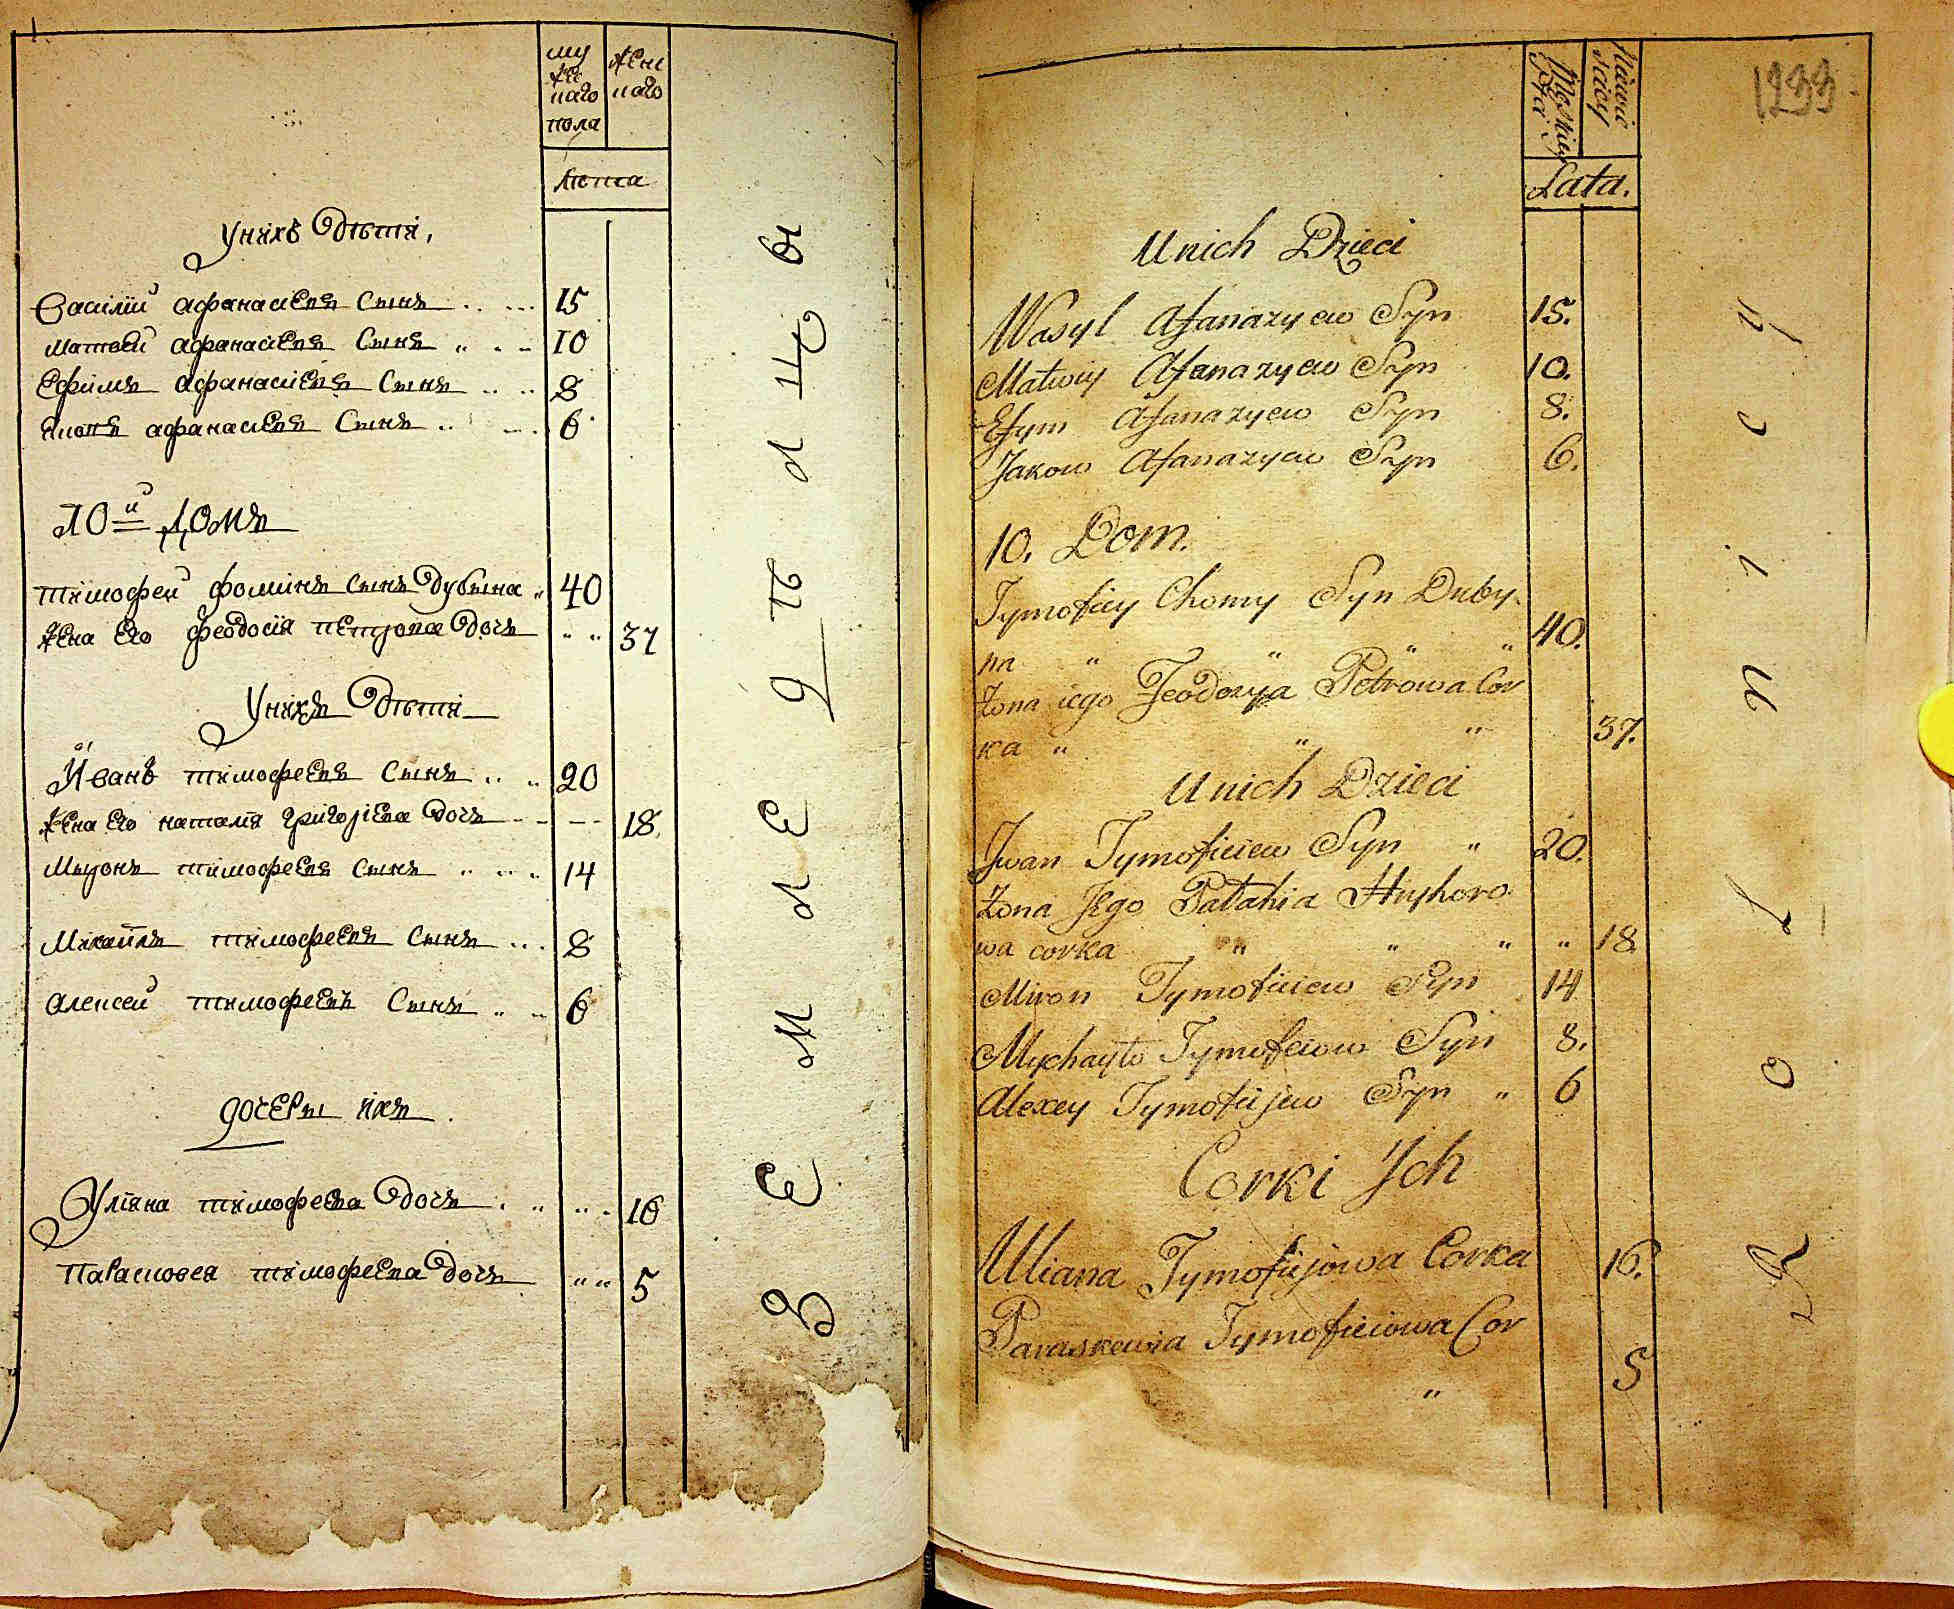 му
же
наго
пола
жен
наго
лета
У них дети,
Василий Афанасиев сын 15
Матвей Афанасиев сын 10
Ефим Афанасиев сын 8
Яков Афанасиев сын 6
10й Дом
Тимофей Фомин сын Дубына 40
Жена его Феодосия Петрова дочь 37
У них дети
Иван Тимофеев сын 20
Жена его Наталия Григориева дочь 18
Мирон Тимофеев сын 14
Михайла Тимофеев сын 8
Алексей Тимофеев сын 6
дочеры их
Улiяна Тимофеева дочь 16
Парасковея Тимофеева дочь 5
з е м л е
1233
Męskiey
Płci
Niewie
sciey
Lata.
Unich Dzieci
Wasyl Afanazyew Syn 15.
Matwiy Afanazyew Syn 10.
Efym Afanazyew Syn 8.
Jakow Afanazyew Syn 6.
10. Dom.
Tymofiey Chomy Syn Duby-
na " " " " 40.
Żona iego Feodozya Petrowa Cor
ka " " " 37.
Unich Dzieci
Jwan Tymofieiew Syn " 20.
Żona Jego Natalia Hryhoro
wa corka " " " " 18
Miron Tymofieiew Syn 14
Mychayło Tymofeiow Syn 8.
Alexey Tymofiijew Syn " 6
Corki Jch
Uliana Tymofiijowa Corka 16.
Paraskewia Tymofieiowa Cor
" 5